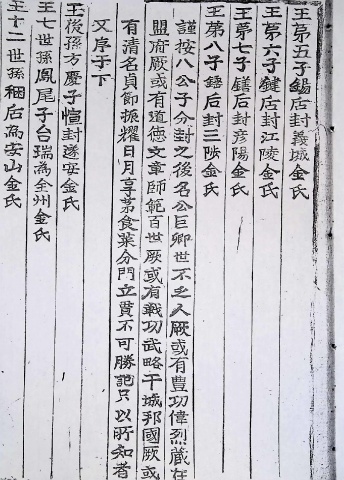 王第五子錫后封義城金氏
王第六子鍵后封江陵金氏
王第七子鐥后封彦陽金氏
王第八子錘后封三陟金氏
謹按八公子分封之後名公巨卿世不乏人厥或有豊功偉烈藏在
盟府厥或有道徳文章師範百世厥或有戰功武略干城邦國厥或
有清名貞節振耀日月享茅食菜分門立貫不可勝記只以所知者
又序于下
王後孫方慶子愃封遂安金氏
王七世孫鳳尾子台瑞為全州金氏
王十二世孫 后為安山金氏